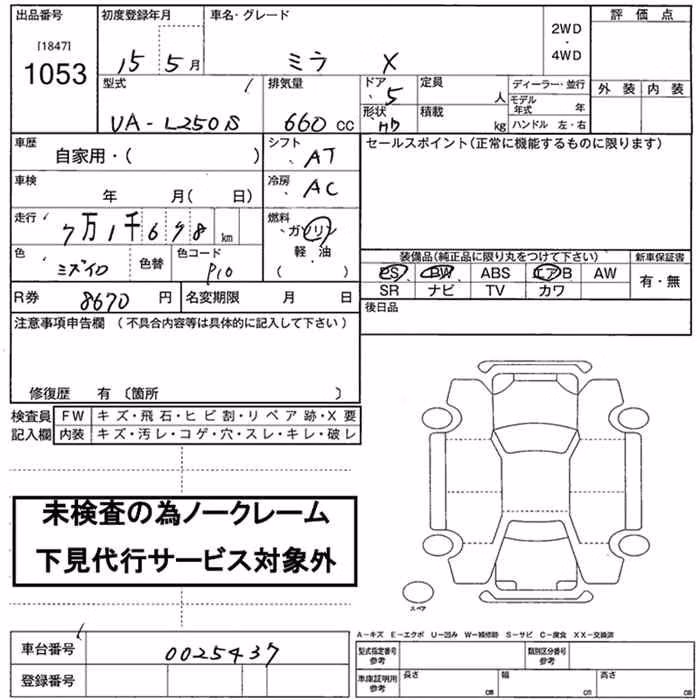 出品番号 初度登録年月 車名・グレード 評価点
[1847]
1053
15 5月 ミラ X 2WD・4WD
外装 内装
型式 排気量 ドア 定員 ディーラー・並行
5 人 モデル年式 年
UA-L250S 660 cc 形状 HB 積載 kg ハンドル 左・右
車歴 シフト セールスポイント(正常に機能するものに限ります)
自家用・( ) AT
車検 冷房
年 月( 日) AC
走行 燃料
7万1千698 km ガソリン
軽油
( )
色 色替 色コード
ミズイロ P10
装備品(純正品に限り丸をつけて下さい) 新車保証書
PS PW ABS エアB AW 有・無
SR ナビ TV カワ
R券 8670 円 名変期限 月 日
後日品
注意事項申告欄 (不具合内容等は具体的に記入して下さい)
修復歴 有 〔箇所 〕
検査員 FW キズ・飛石・ヒビ割・リペア跡・X要
記入欄 内装 キズ・汚レ・コゲ・穴・スレ・キレ・破レ
未検査の為ノークレーム
下見代行サービス対象外
スペア
A-キズ E-エクボ U-凹み W-補修跡 S-サビ C-腐食 XX-交換済
車台番号 0025437
登録番号
型式指定番号 参考 類別区分番号 参考
車庫証明用 参考 長さ cm 幅 cm 高さ cm